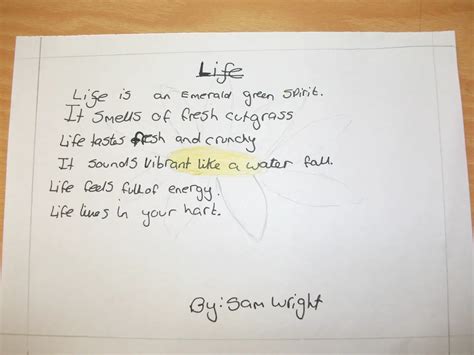 Life
Life is an Emerald green spirit.
It smells of fresh cutgrass
Life tasts fresh and crunchy
It sounds vibrant like a water fall.
Life feels full of energy.
Life lives in your hart.
By: Sam Wright